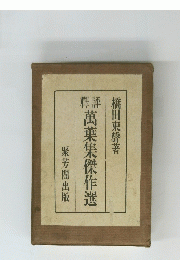 橋田東聲著
評釋
萬葉集傑作選
聚芳閣出版